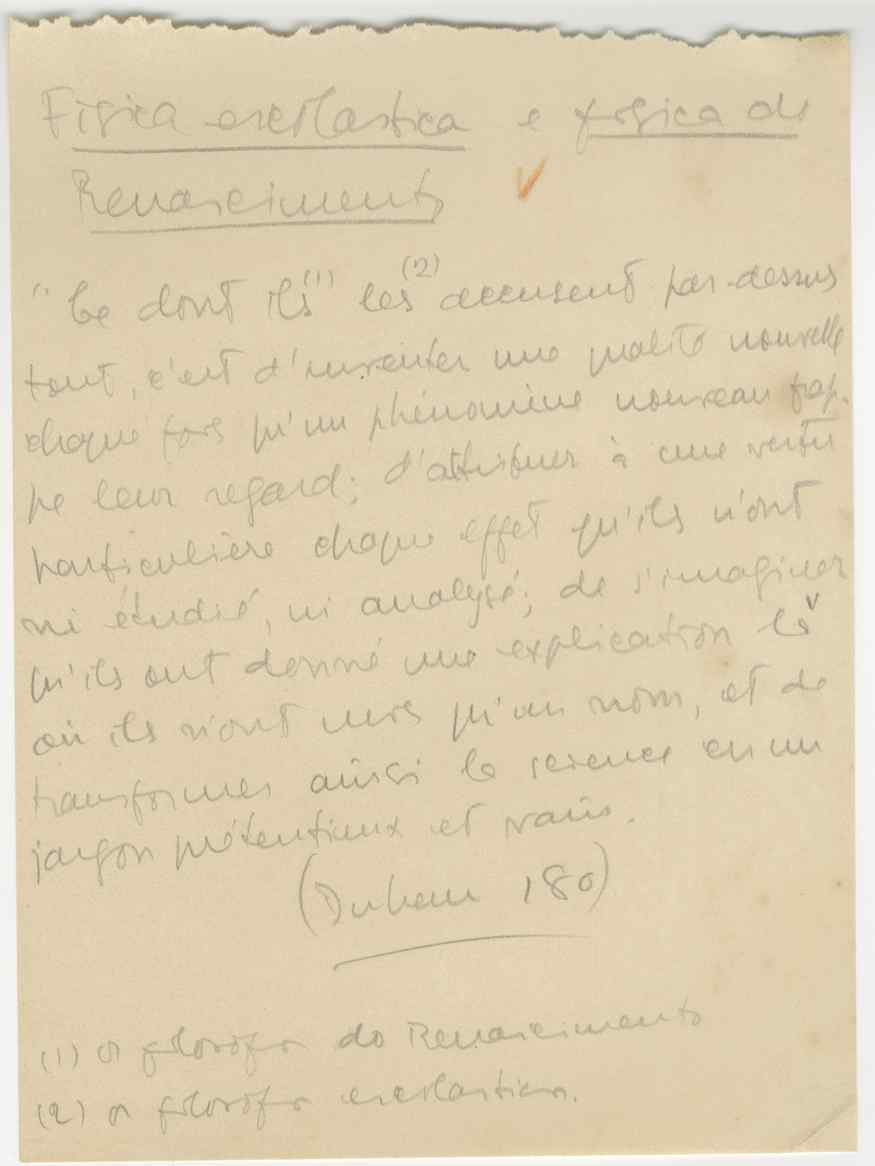 Fisica escolastica e fisica do
Renascimento
" Ce dont ils (1) les (2) accusent par-dessus
tout, c'est d'inventer une qualité nouvelle
chaque fois qu'un phénomène nouveau frap-
pe leur regard; d'attribuer à une vertu
particulière chaque effet qu'ils n'ont
ni étudié, ni analysé; de s'imaginer
qu'ils ont donné une explication là
où ils n'ont mis qu'un nom, et de
transformer ainsi la science en un
jargon prétentieux et vain.
(Duhem 180)
(1) os filosofos do Renascimento
(2) os filosofos escolasticos.